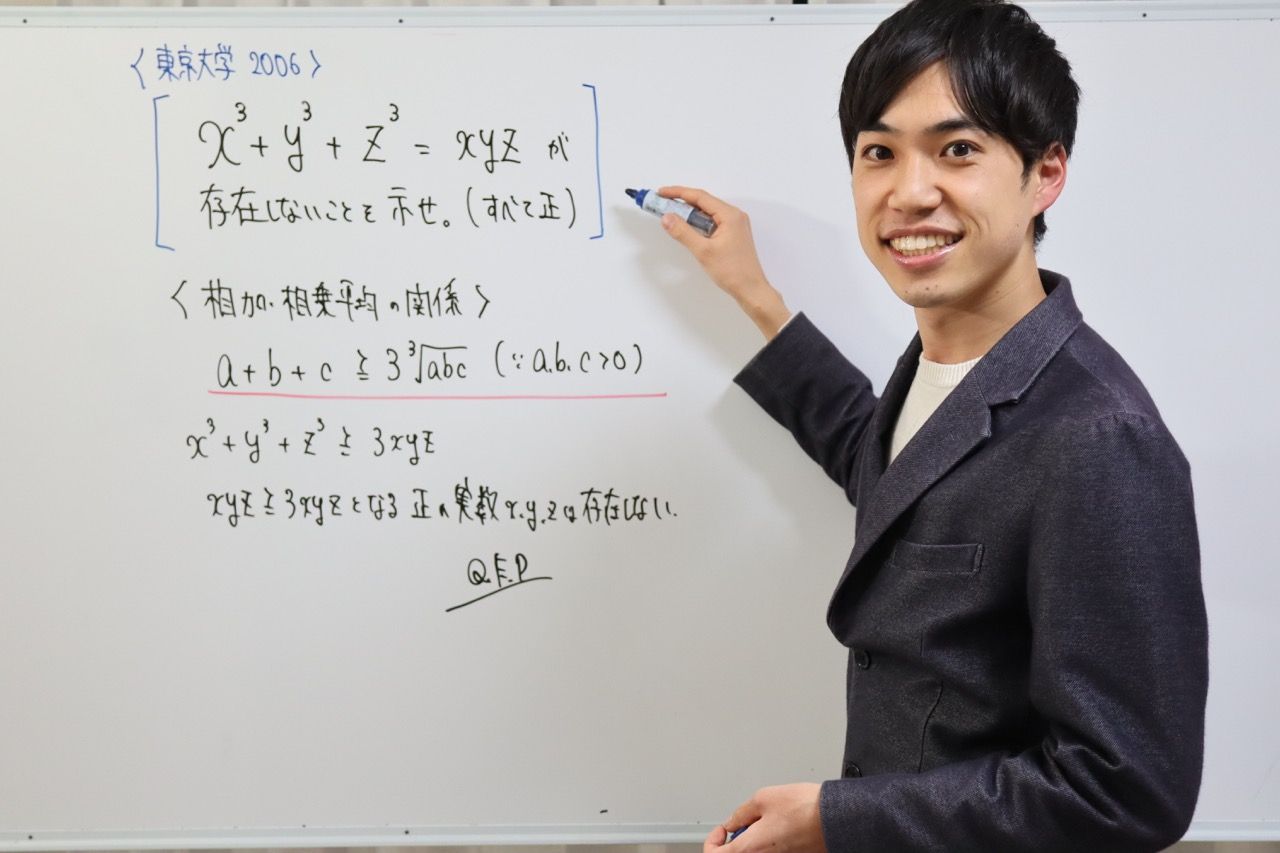 〈東京大学 2006〉
x³+y³+z³=xyz が
存在しないことを示せ。(すべて正)
〈相加・相乗平均の関係〉
a+b+c≧3³√abc (∵a.b.c>0)
x³+y³+z³≧3xyz
xyz≧3xyzとなる正の実数x.y.zは存在しない.
Q.E.D